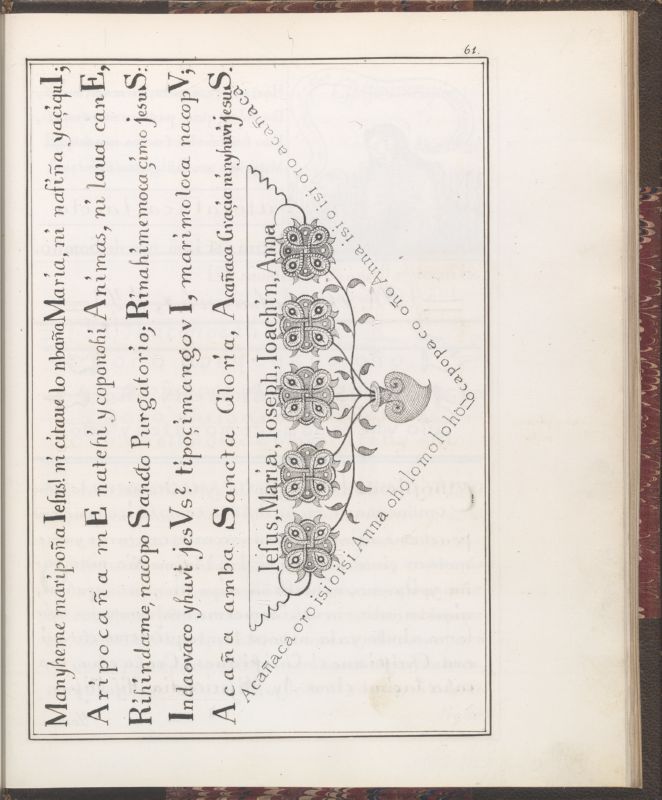 61.
Manyheme maripoña Iesus! ni citaue lo nbaña Maria, ni nafiña yaciqui I;
Aripocaña mE natehi y coponohi Animas, ni laua can E,
Rihindame, nacopo Sancto Purgatorio; Rinahimemoca çimo jesuS:
Indaovaco yhuvi jesVs? tipocimangov I, marimoloca nacopV;
Acaña amba Sancta Gloria, Acañaca Gracia ninyhuvi jesuS.
Iesus, Maria, Ioseph, Ioachin, Anna
Acañaca oroisioisi Anna oholomoloho
Ocapopaco oño Anna isi o isi oro acañaca